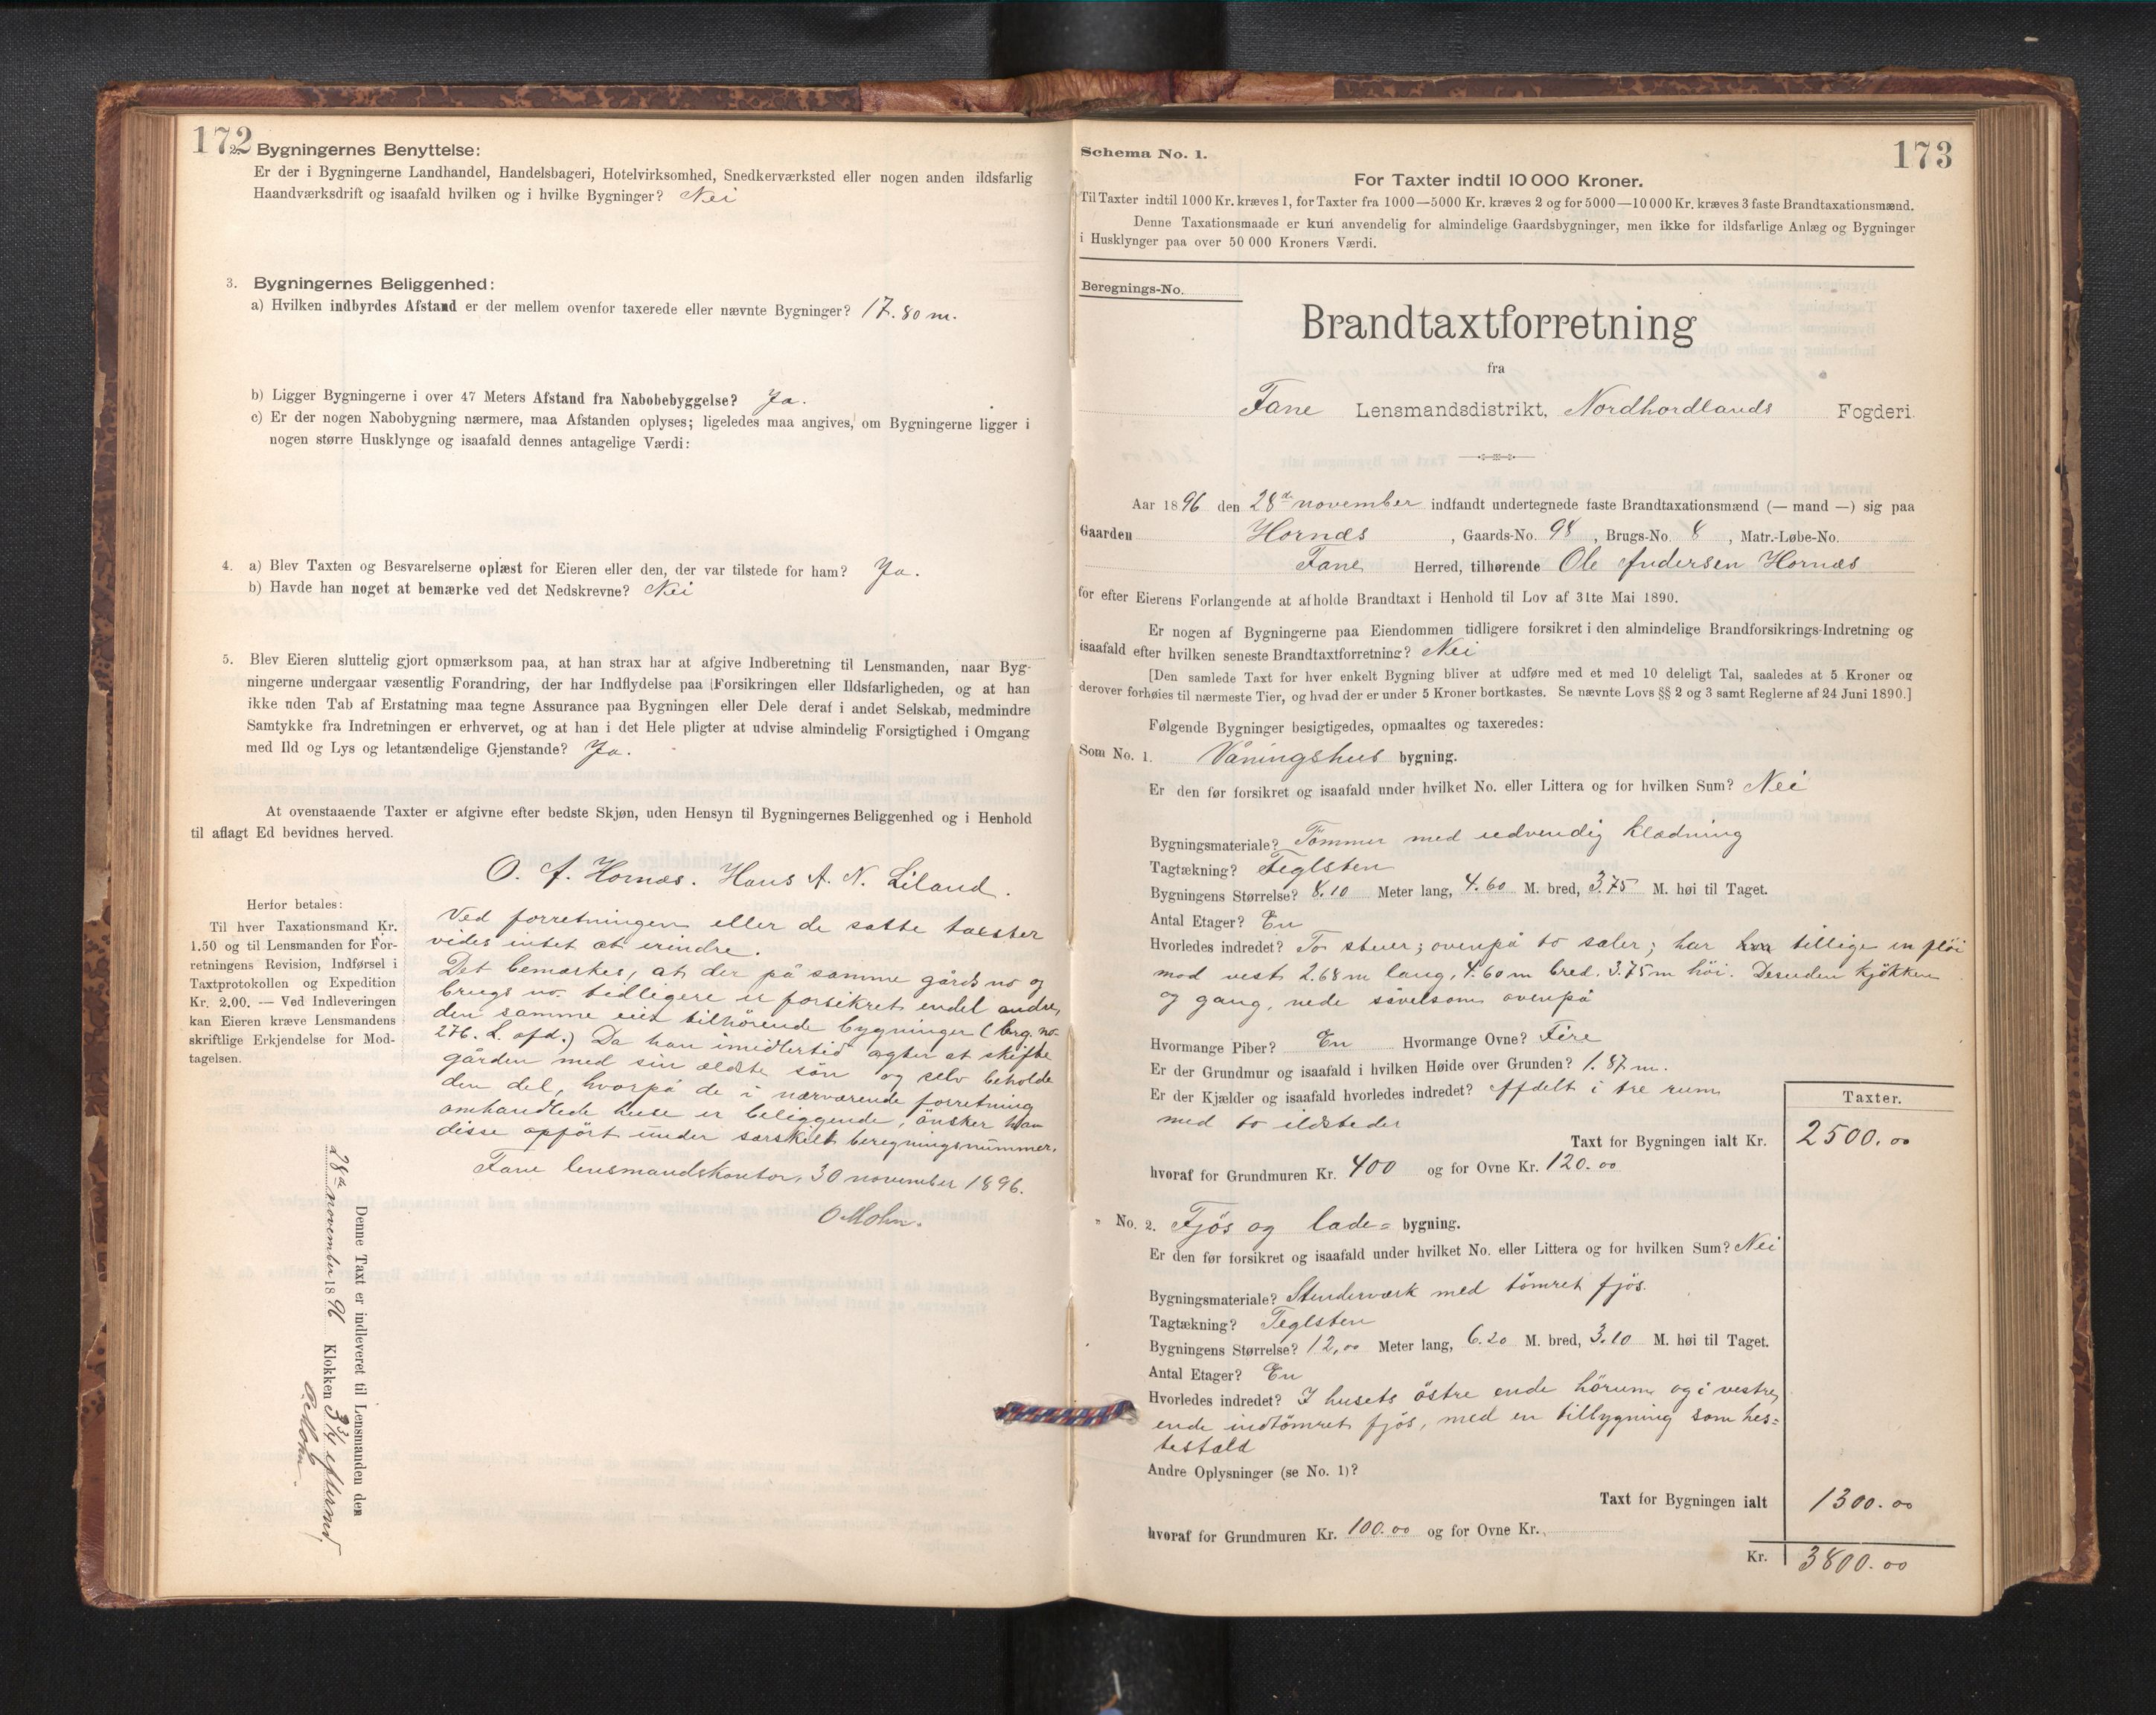 172
2. Bygningernes Benyttelse:
Er der i Bygningerne Landhandel, Handelsbageri, Hotelvirksomhed, Snedkerværksted eller nogen anden ildsfarlig
Haandværksdrift og isaafald hvilken og i hvilke Bygninger? Nei
3. Bygningernes Beliggenhed:
a) Hvilken indbyrdes Afstand er der mellem ovenfor taxerede eller nævnte Bygninger? 17.80 m.
b) Ligger Bygningerne i over 47 Meters Afstand fra Nabobebyggelse? Ja.
c) Er der nogen Nabobygning nærmere, maa Afstanden oplyses; ligeledes maa angives, om Bygningerne ligger i
nogen større Husklynge og isaafald dennes antagelige Værdi:
4. a) Blev Taxten og Besvarelserne oplæst for Eieren eller den, der var tilstede for ham? Ja.
b) Havde han noget at bemærke ved det Nedskrevne? Nei
5. Blev Eieren sluttelig gjort opmærksom paa, at han strax har at afgive Indberetning til Lensmanden, naar Byg-
ningerne undergaar væsentlig Forandring, der har Indflydelse paa Forsikringen eller Ildsfarligheden, og at han
ikke uden Tab af Erstatning maa tegne Assurance paa Bygningen eller Dele deraf i andet Selskab, medmindre
Samtykke fra Indretningen er erhvervet, og at han i det Hele pligter at udvise almindelig Forsigtighed i Omgang
med Ild og Lys og letantændelige Gjenstande? Ja.
At ovenstaaende Taxter er afgivne efter bedste Skjøn, uden Hensyn til Bygningernes Beliggenhed og i Henhold
til aflagt Ed bevidnes herved.
O. A. Hornæs. Hans A. N. Liland.
Herfor betales:
Til hver Taxationsmand Kr.
1.50 og til Lensmanden for For-
retningens Revision, Indførsel i
Taxtprotokollen og Expedition
Kr. 2.00. — Ved Indleveringen
kan Eieren kræve Lensmandens
skriftlige Erkjendelse for Mod-
tagelsen.
Ved forretningen eller de satte taxter
vides intet at erindre.
Det bemærkes, at der på samme gårds no og
brugs no. tidligere er forsikret endel andre,
den samme eier tilhörende bygninger (berg. no.
276. L. afd.) Da han imidlertid agter at skifte
gården med sin ældste sön og selv beholde
den del, hvorpå de i nærværende forretning
omhandlede huse er beliggende, önsker han
disse opfört under særskilt beregningsnummer.
Fane lensmandskontor, 30 november 1896.
O Mohn.
Denne Taxt er indleveret til Lensmanden den
28de november 1896 Klokken 3 3/4 efterm
O. Mohn.
173
Schema No. 1.
For Taxter indtil 10 000 Kroner.
Til Taxter indtil 1000 Kr. kræves 1, for Taxter fra 1000—5000 Kr. kræves 2 og for 5000—10 000 Kr. kræves 3 faste Brandtaxationsmænd.
Denne Taxationsmaade er kun anvendelig for almindelige Gaardsbygninger, men ikke for ildsfarlige Anlæg og Bygninger
i Husklynger paa over 50 000 Kroners Værdi.
Beregnings-No.
Brandtaxtforretning
fra
Fane Lensmandsdistrikt, Nordhordlands Fogderi.
Aar 1896 den 28de november indfandt undertegnede faste Brandtaxationsmænd (— mand —) sig paa
Gaarden Hornæs, Gaards-No. 98, Brugs-No. 8, Matr.-Løbe-No.
Fane Herred, tilhørende Ole Andersen Hornæs
for efter Eierens Forlangende at afholde Brandtaxt i Henhold til Lov af 31te Mai 1890.
Er nogen af Bygningerne paa Eiendommen tidligere forsikret i den almindelige Brandforsikrings-Indretning og
isaafald efter hvilken seneste Brandtaxtforretning? Nei
[Den samlede Taxt for hver enkelt Bygning bliver at udføre med et med 10 deleligt Tal, saaledes at 5 Kroner og
derover forhøies til nærmeste Tier, og hvad der er under 5 Kroner bortkastes. Se nævnte Lovs §§ 2 og 3 samt Reglerne af 24 Juni 1890.]
Følgende Bygninger besigtigedes, opmaaltes og taxeredes:
Som No. 1. Våningshus bygning.
Er den før forsikret og isaafald under hvilket No. eller Littera og for hvilken Sum? Nei
Bygningsmateriale? Tömmer med udvendig klædning
Tagtækning? Teglsten
Bygningens Størrelse? 8.10 Meter lang, 4.60 M. bred, 3.75 M. høi til Taget.
Antal Etager? En
Hvorledes indredet? To stuer; ovenpå to saler; har tillige en flöi
mod vest 2.68 m lang, 4.60 m bred. 3.75 m höi. Desuden kjökken
og gang, nede såvelsom ovenpå
Hvormange Piber? En Hvormange Ovne? Fire
Er der Grundmur og isaafald i hvilken Høide over Grunden? 1.87 m.
Er der Kjælder og isaafald hvorledes indredet? Afdelt i tre rum
med to ildsteder
Taxter.
Taxt for Bygningen ialt Kr. 2500.00
hvoraf for Grundmuren Kr. 400 og for Ovne Kr. 120.00
" No. 2. Fjös og lade= bygning.
Er den før forsikret og isaafald under hvilket No. eller Littera og for hvilken Sum? Nei
Bygningsmateriale? Stenderværk med tömret fjös.
Tagtækning? Teglsten
Bygningens Størrelse? 12,00 Meter lang, 6.20 M. bred, 3.10 M. høi til Taget.
Antal Etager? En
Hvorledes indredet? I husets östre ende hörum og i vestre
ende indtömret fjös, med en tilbygning som hes=
testald
Andre Oplysninger (se No. 1)?
Taxt for Bygningen ialt 1300.00
hvoraf for Grundmuren Kr. 100.00 og for Ovne Kr.
Kr. 3800.00